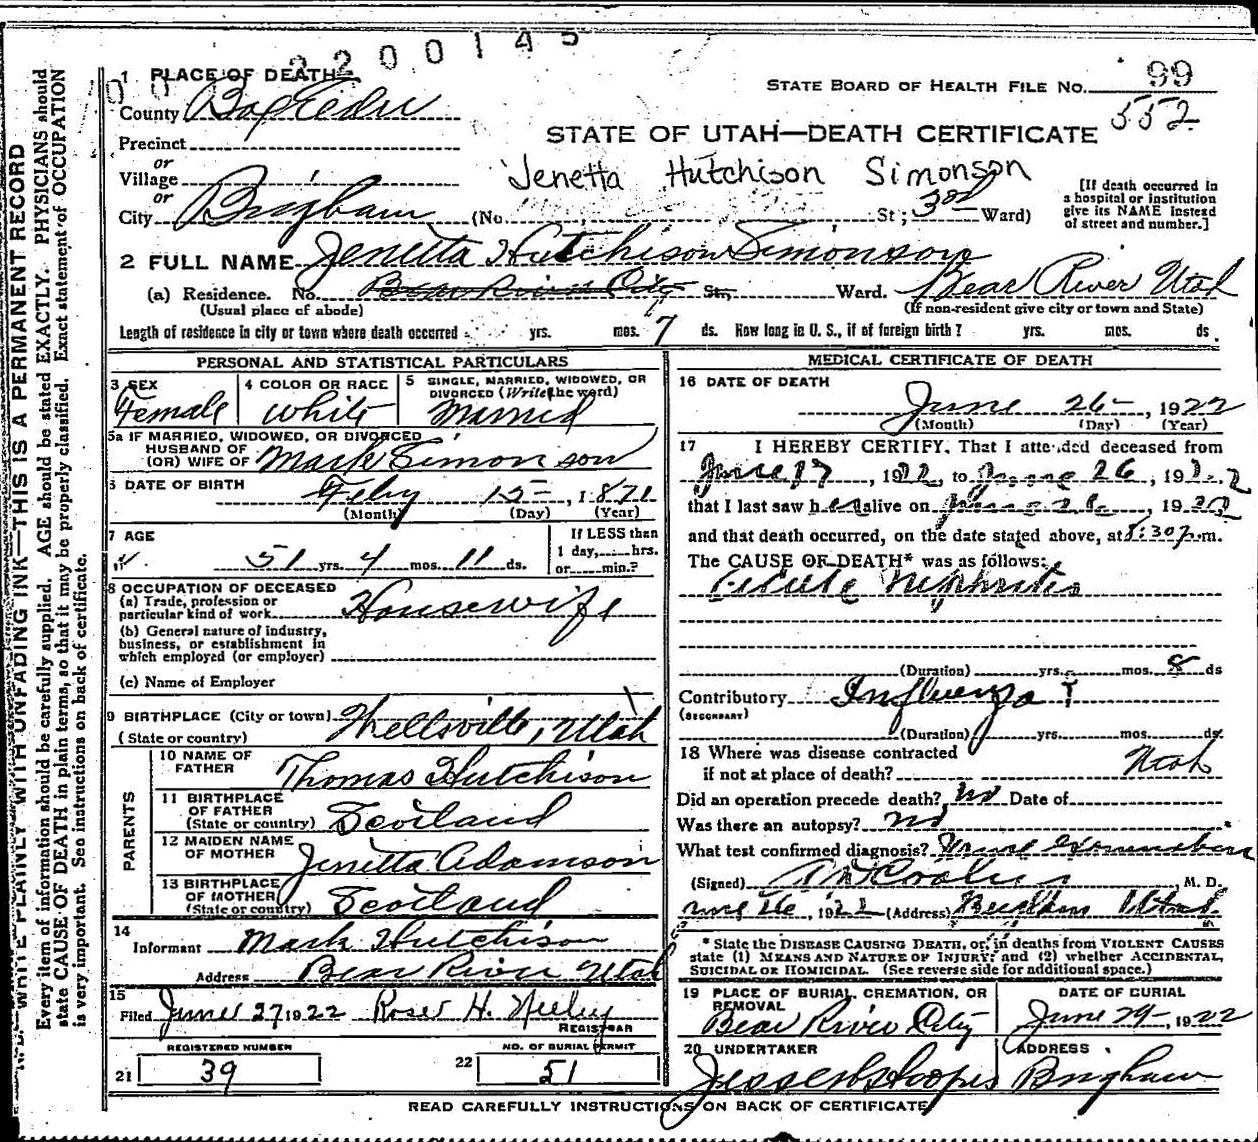 2200145
1 PLACE OF DEATH
STATE BOARD OF HEALTH FILE No. 99
County Box Elder
552
STATE OF UTAH—DEATH CERTIFICATE
Precinct
or
Village
Jenetta Hutchison Simonson
or
City Brigham (No. St; 3rd Ward)
[If death occurred in
a hospital or institution
give its NAME instead
of street and number.]
2 FULL NAME Jenetta Hutchison Simonson
(a) Residence. No. Bear River City St., Ward. Bear River Utah
(Usual place of abode) (If non-resident give city or town and State)
Length of residence in city or town where death occurred yrs. mos. 7 ds. How long in U. S., if of foreign birth? yrs. mos. ds.
PERSONAL AND STATISTICAL PARTICULARS
3 SEX
Female
4 COLOR OR RACE
White
5 SINGLE, MARRIED, WIDOWED, OR
DIVORCED (Write the word)
Married
5a IF MARRIED, WIDOWED, OR DIVORCED
HUSBAND OF
(OR) WIFE OF Mark Simonson
6 DATE OF BIRTH Feby 15—, 1871
(Month) (Day) (Year)
7 AGE
51 yrs. 4 mos. 11 ds.
If LESS than
1 day, hrs.
or min.?
8 OCCUPATION OF DECEASED
(a) Trade, profession or
particular kind of work Housewife
(b) General nature of industry,
business, or establishment in
which employed (or employer)
(c) Name of Employer
9 BIRTHPLACE (City or town) Wellsville, Utah
(State or country)
PARENTS
10 NAME OF
FATHER Thomas Hutchison
11 BIRTHPLACE
OF FATHER
(State or country) Scotland
12 MAIDEN NAME
OF MOTHER Jenetta Adamson
13 BIRTHPLACE
OF MOTHER
(State or country) Scotland
14
Informant Mark Hutchison
Address Bear River Utah
15
Filed June 27 1922 Rose H. Neeley
REGISTRAR
REGISTERED NUMBER
21 39
NO. OF BURIAL PERMIT
22 51
MEDICAL CERTIFICATE OF DEATH
16 DATE OF DEATH
June 26—, 1922
(Month) (Day) (Year)
17 I HEREBY CERTIFY, That I attended deceased from
June 17, 1922, to June 26, 1922
that I last saw her alive on June 26, 1922
and that death occurred, on the date stated above, at 8:30 p.m.
The CAUSE OF DEATH* was as follows:
Acute Nephritis
(Duration) yrs. mos. 8 ds
Contributory Influenza
(SECONDARY)
(Duration) yrs. mos. ds.
18 Where was disease contracted
if not at place of death? Utah
Did an operation precede death? No Date of
Was there an autopsy? No
What test confirmed diagnosis? Urine
(Signed) M. D.
June 26, 1922 (Address) Brigham Utah
* State the DISEASE CAUSING DEATH, or, in deaths from VIOLENT CAUSES
state (1) MEANS AND NATURE OF INJURY; and (2) whether ACCIDENTAL,
SUICIDAL OR HOMICIDAL. (See reverse side for additional space.)
19 PLACE OF BURIAL, CREMATION, OR
REMOVAL
Bear River City
DATE OF BURIAL
June 29—, 1922
20 UNDERTAKER
ADDRESS
Brigham
READ CAREFULLY INSTRUCTIONS ON BACK OF CERTIFICATE
WRITE PLAINLY WITH UNFADING INK—THIS IS A PERMANENT RECORD
Every item of information should be carefully supplied. AGE should be stated EXACTLY. PHYSICIANS should
state CAUSE OF DEATH in plain terms, so that it may be properly classified. Exact statement of OCCUPATION
is very important. See instructions on back of certificate.